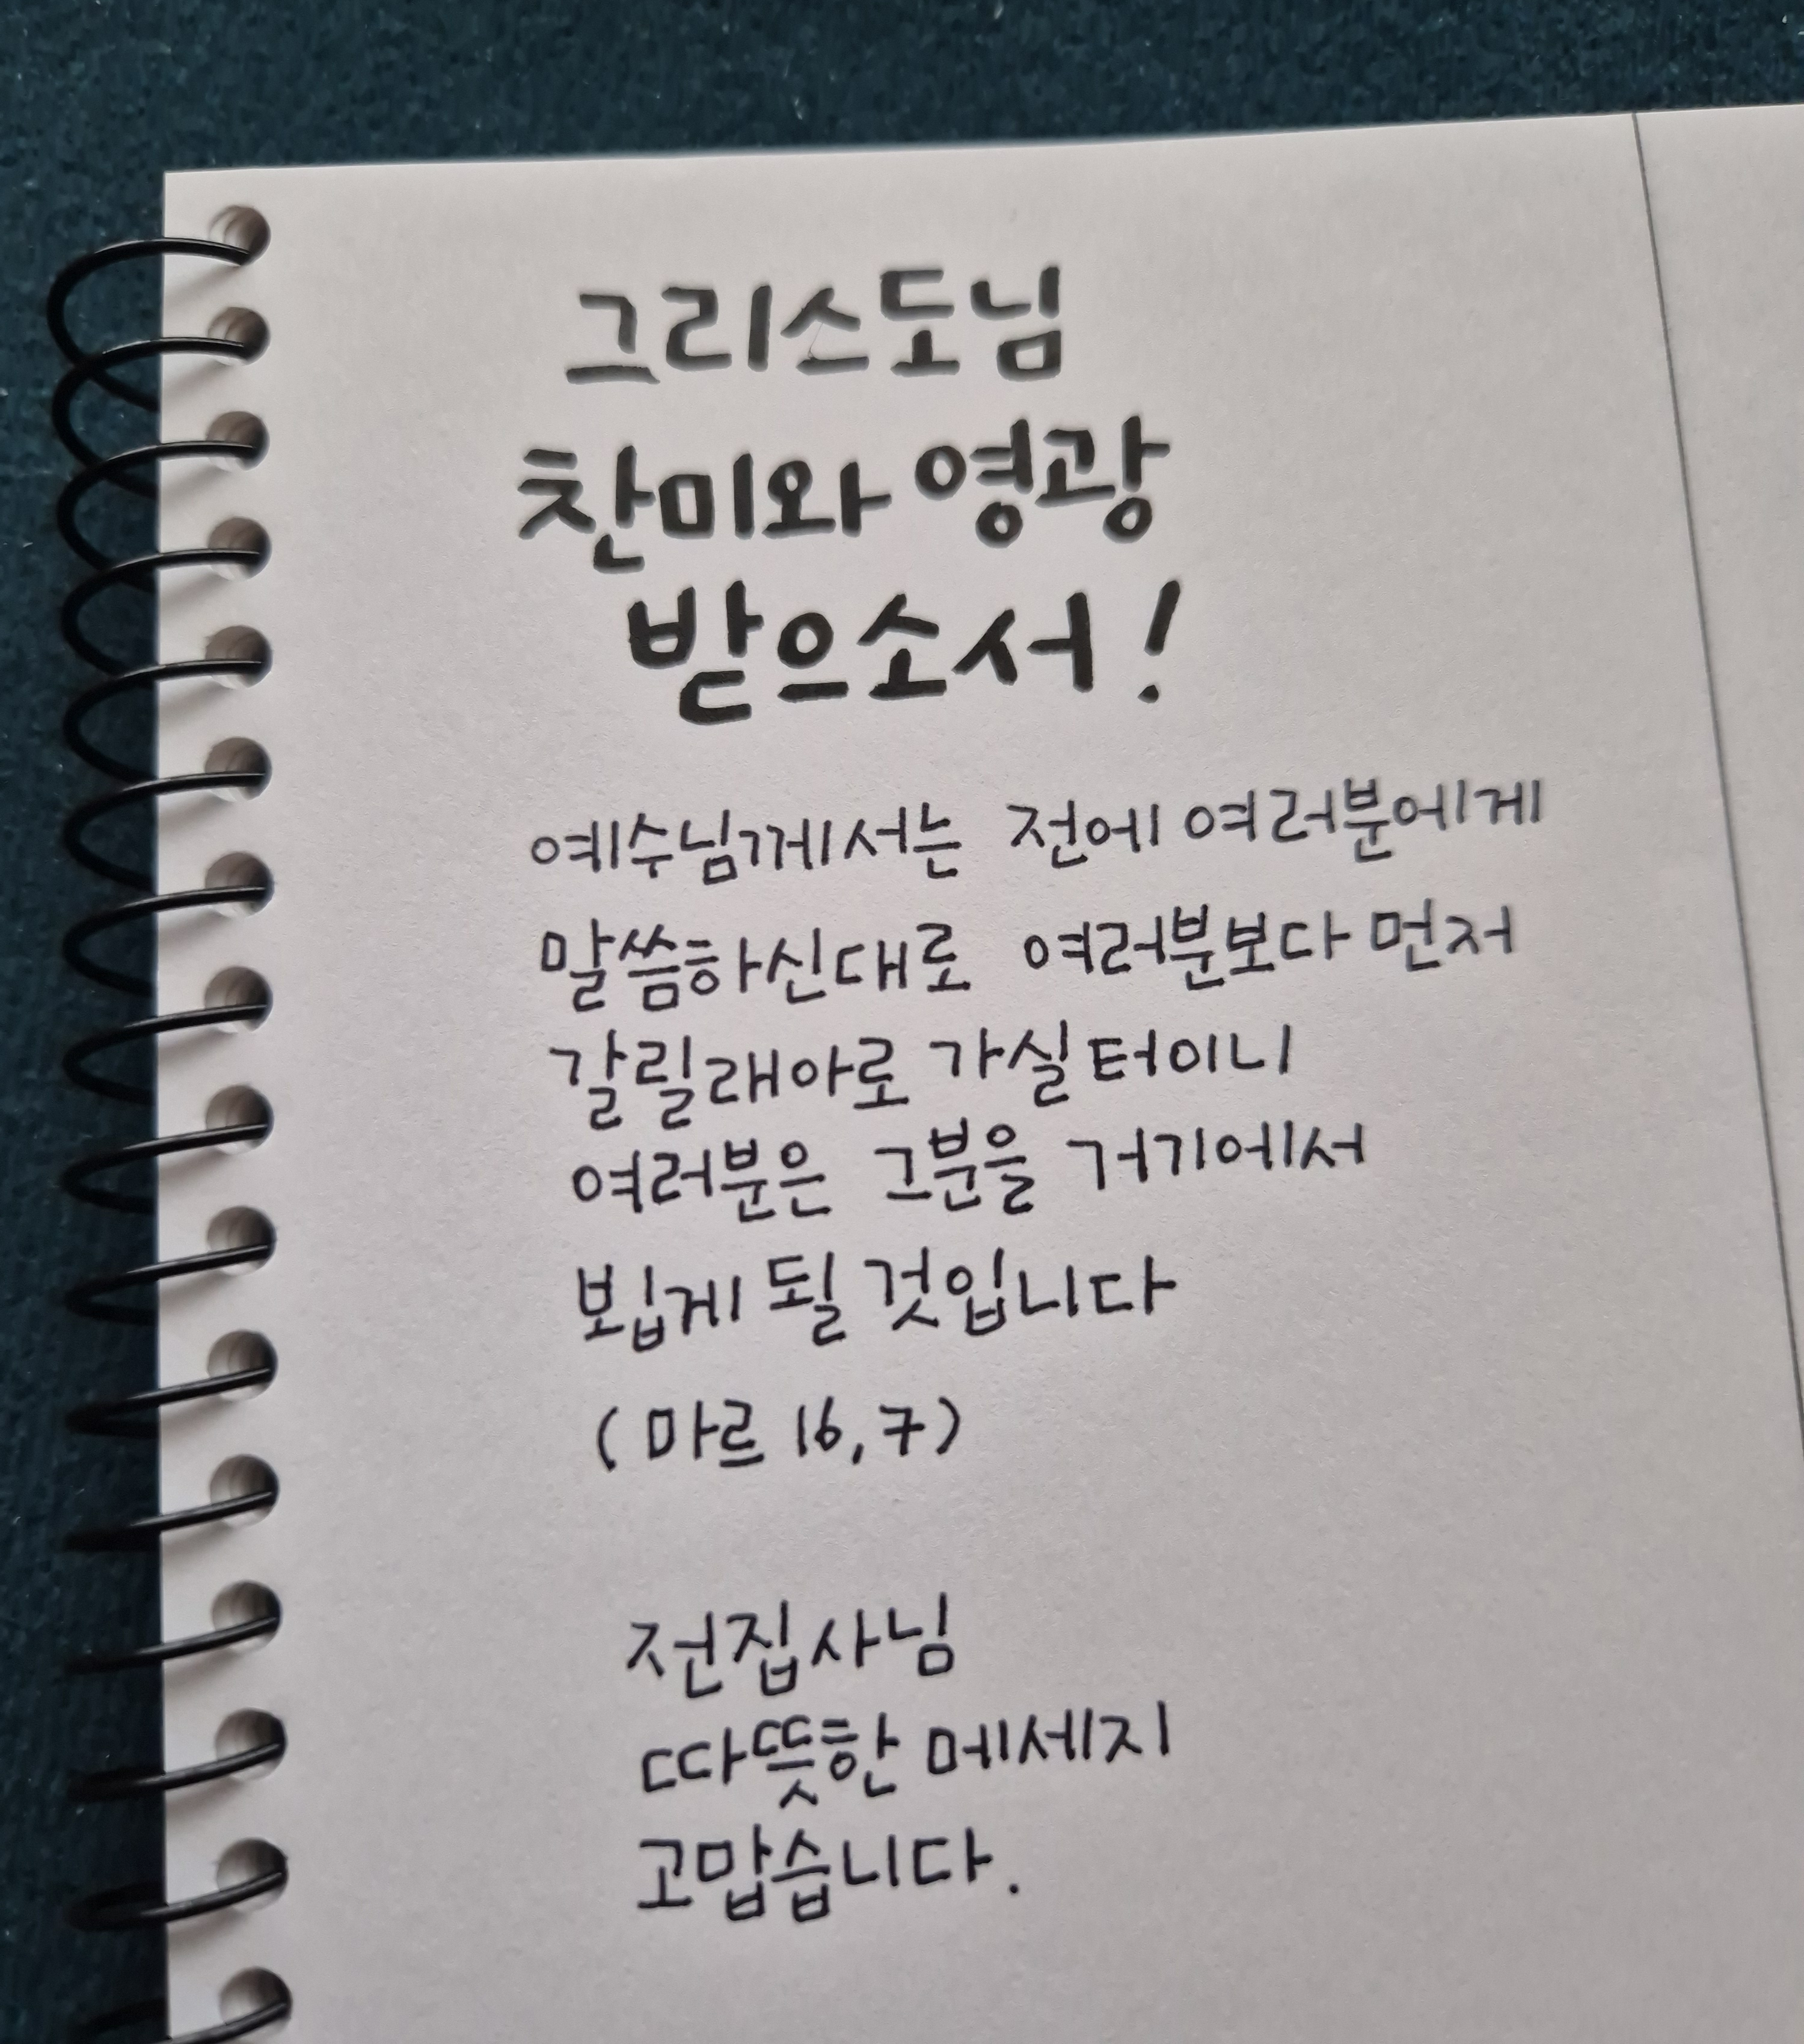 그리스도님
찬미와 영광
받으소서!
예수님께서는 전에 여러분에게
말씀하신대로 여러분보다 먼저
갈릴래아로 가실터이니
여러분은 그분을 거기에서
뵙게 될 것입니다
(마르 16,7)
전집사님
따뜻한 메세지
고맙습니다.